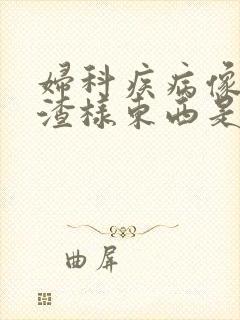 婦科疾病像
渣様東西是
曲屏